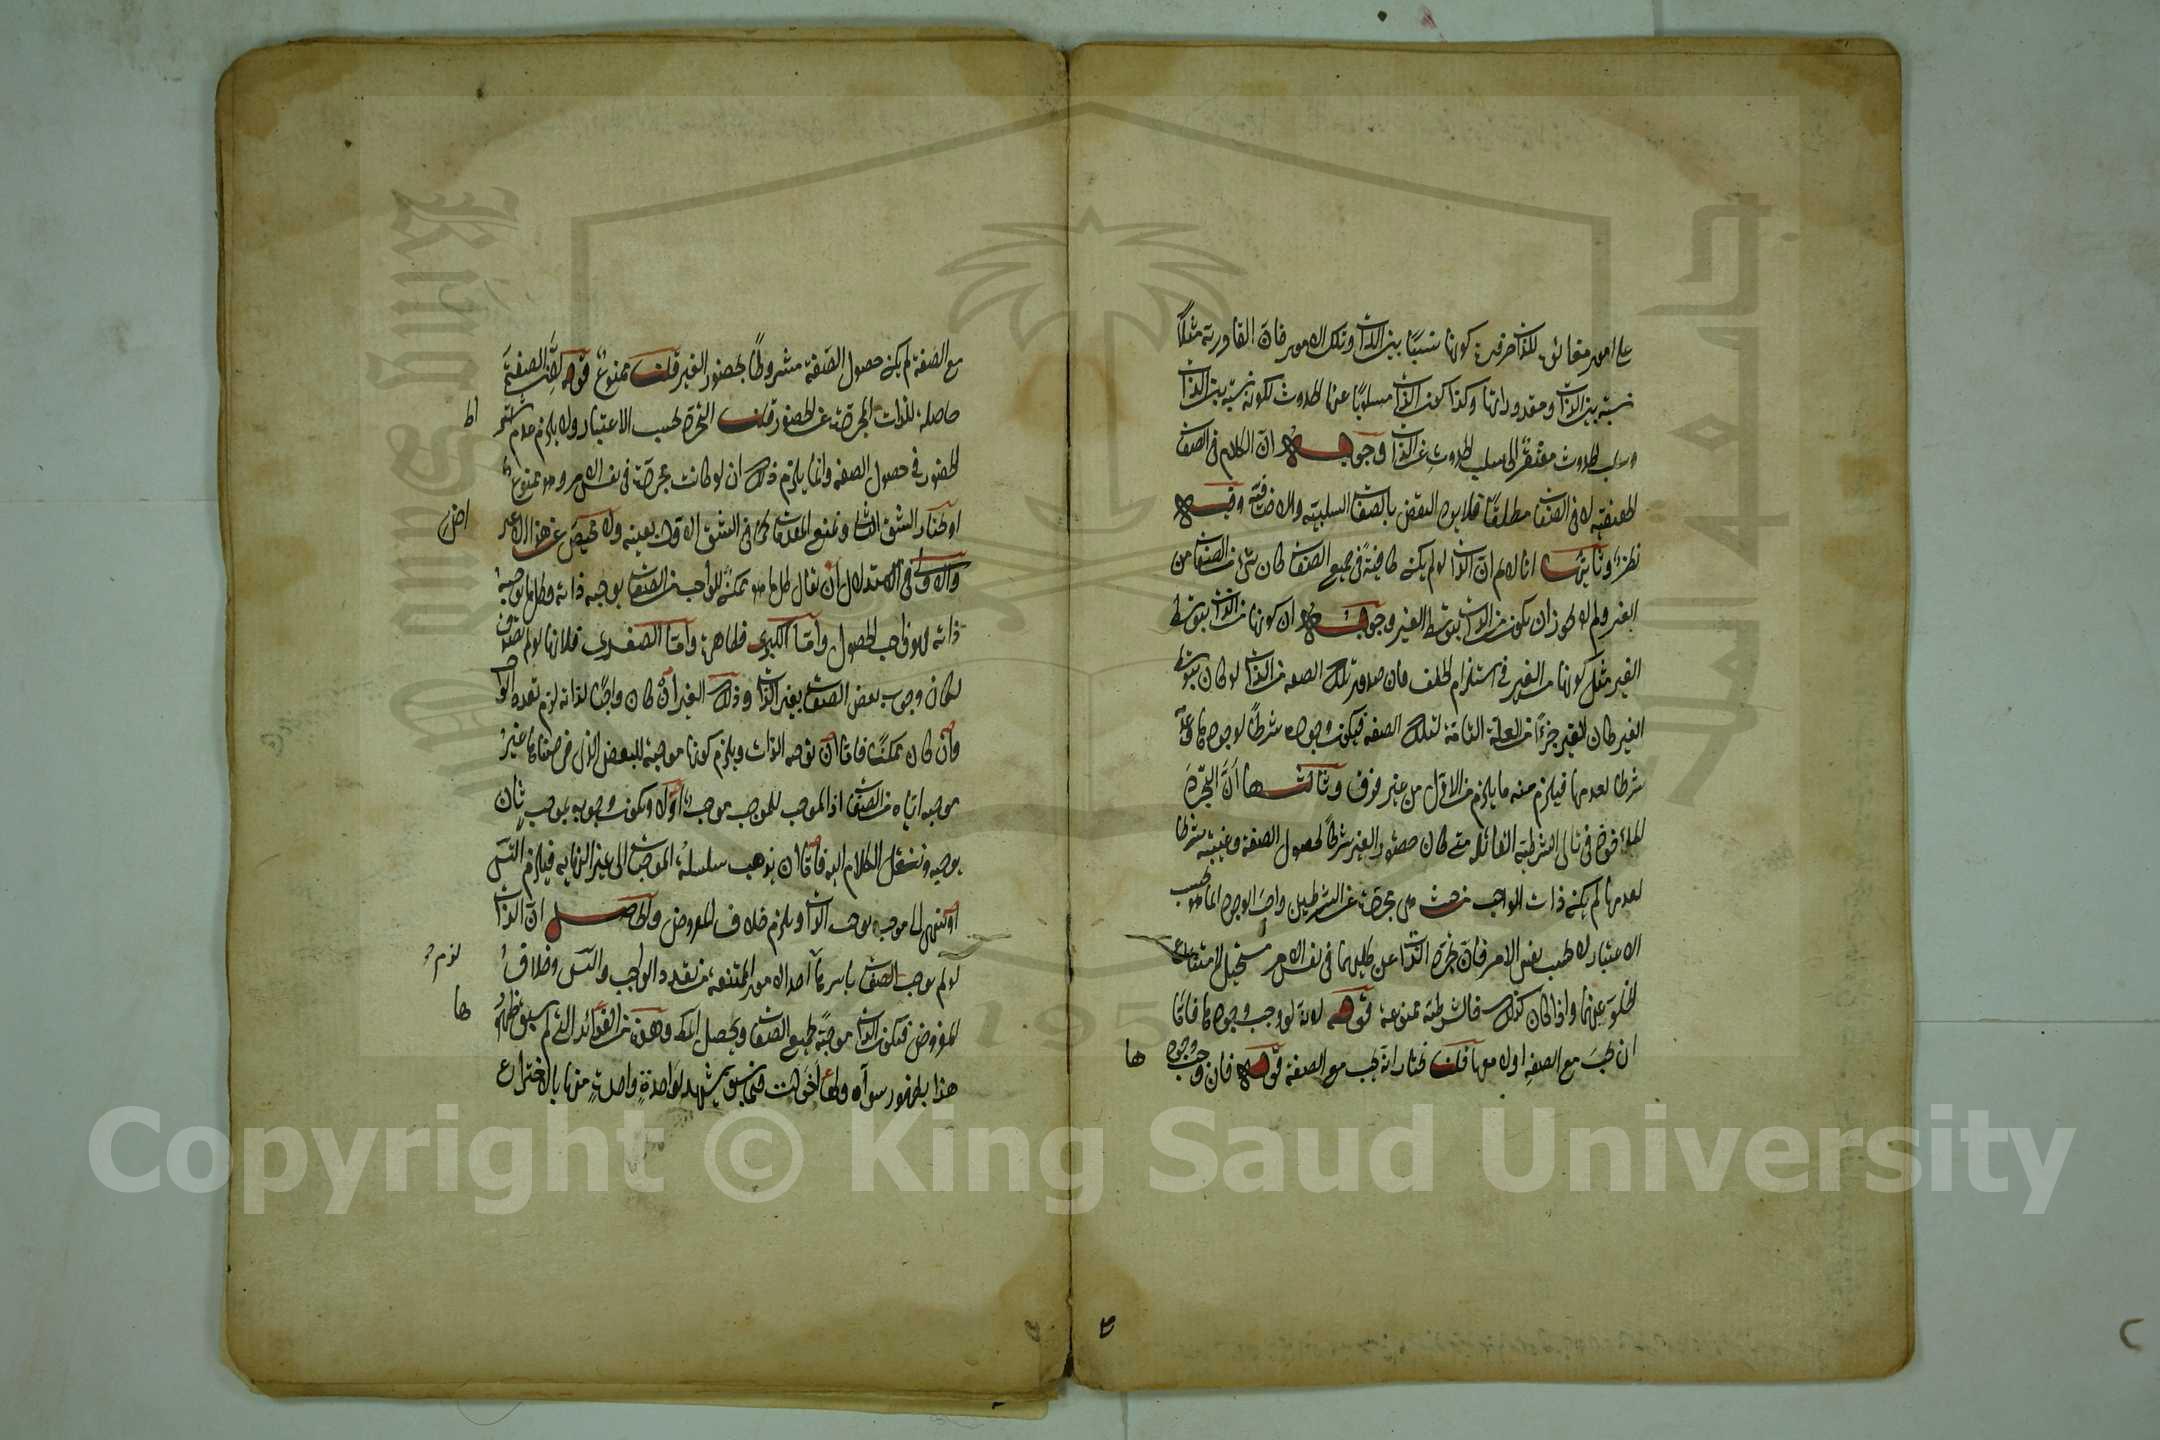 على امور متغايرة للذات من حيث كونها نسبًا بين الذات وتلك الامور فان القادرية مثلاً
نسبة بين الذات ومقدوراتها وكذا كون الذات مسلوبًا عنها الحدوث لكونه نسبة بين الذات
وسلب الحدوث مفتقر الى سلب الحدوث عن الذات وجوابه ان الكلام في الصفات
الحقيقية لا في الصفات مطلقًا فلا يرد النقض بالصفات السلبية والاضافية وفيه
نظر وثانيها انا لا نم ان الذات لو لم يكن كافية في جميع الصفات كان شئ من الصفات من
الغير ولم لا يجوز ان يكون من الذات بتوسط الغير وجوابه ان كونها من الذات بتوسط
الغير مثل كونها من الغير في استلزام الخلف فان صدور تلك الصفة من الذات لو كان بتوسط
الغير كان الغير جزءًا من العلة التامة لتلك الصفة فيكون وجوده شرطًا لوجودها وعدمه
شرطا لعدمها فيلزم منه ما يلزم من الاول من غير فرق وثالثها ان التجرد
الماخوذ في تالى الشرطية القائلة متى كان حضور الغير شرطًا لحصول الصفة وغيبته شرطا
لعدمها لم يكن ذات الواجب من حيث هى مجردة عن الشرطين واجب الوجود انما هو بحسب
الاعتبار لا بحسب نفس الامر فان تجرد الذات عن كليهما في نفس الامر مستحيل لامتناع
الخلو عنهما واذا كان كذلك فالشرطية ممنوعة قوله لانه لو وجب وجودها فاما
ان يجب مع الصفة او لا معها قلت نختار انه يجب مع الصفة قوله فان وجب وجوده
ها
مع الصفة لم يكن حصول الصفة مشروطًا بحضور الغير قلت ممنوع قوله لان الصفة
حاصلة للذات المجردة عن الحضور قلت التجرد بحسب الاعتبار ولا يلزم عدم
الحضور في حصول الصفة وانما يلزم ذلك ان لو كانت مجردة في نفس الامر وهو ممنوع
او نختار الشق الثانى ونمنع المقدمات كما في الشق الاول بعينه ولا محيص عن هذا
والاولى في الاستدلال ان يقال كل ما هو ممكن للواجب من الصفات يوجبه ذاته وكل ما يوجبه
ذاته فهو واجب الحصول واما الكبرى فظاهرة واما الصغرى فلانها لو لم تصدق
لكان وجوب بعض الصفات بغير الذات وذلك الغير ان كان واجبًا لذاته لزم تعدد الواجب
وان كان ممكنًا فاما ان توجبه الذات ويلزم كونها موجبة للبعض الذى فرضناها غير
موجبة اياه من الصفات اذ الموجب للموجب موجب او لا ويكون وجوبه بموجب ثان
يوجبه وننقل الكلام اليه فاما ان يذهب سلسلة الموجبات الى غير النهاية فيلزم التس
او ينتهى الى موجب يوجبه الذات ويلزم خلاف المفروض والحاصل ان الذات
لو لم يوجب الصفات باسرها لزم احد الامور الممتنعة من تعدد الواجب والتس وخلاف
المفروض فتكون الذات موجبة لجميع الصفات ويحصل المط وهذه من الفوائد التى لم يسبق
هذا بظهور سواه ولها اخوات فيما سبق يشهد لواحدة واحدة منها بالاختراع
لزم
ها